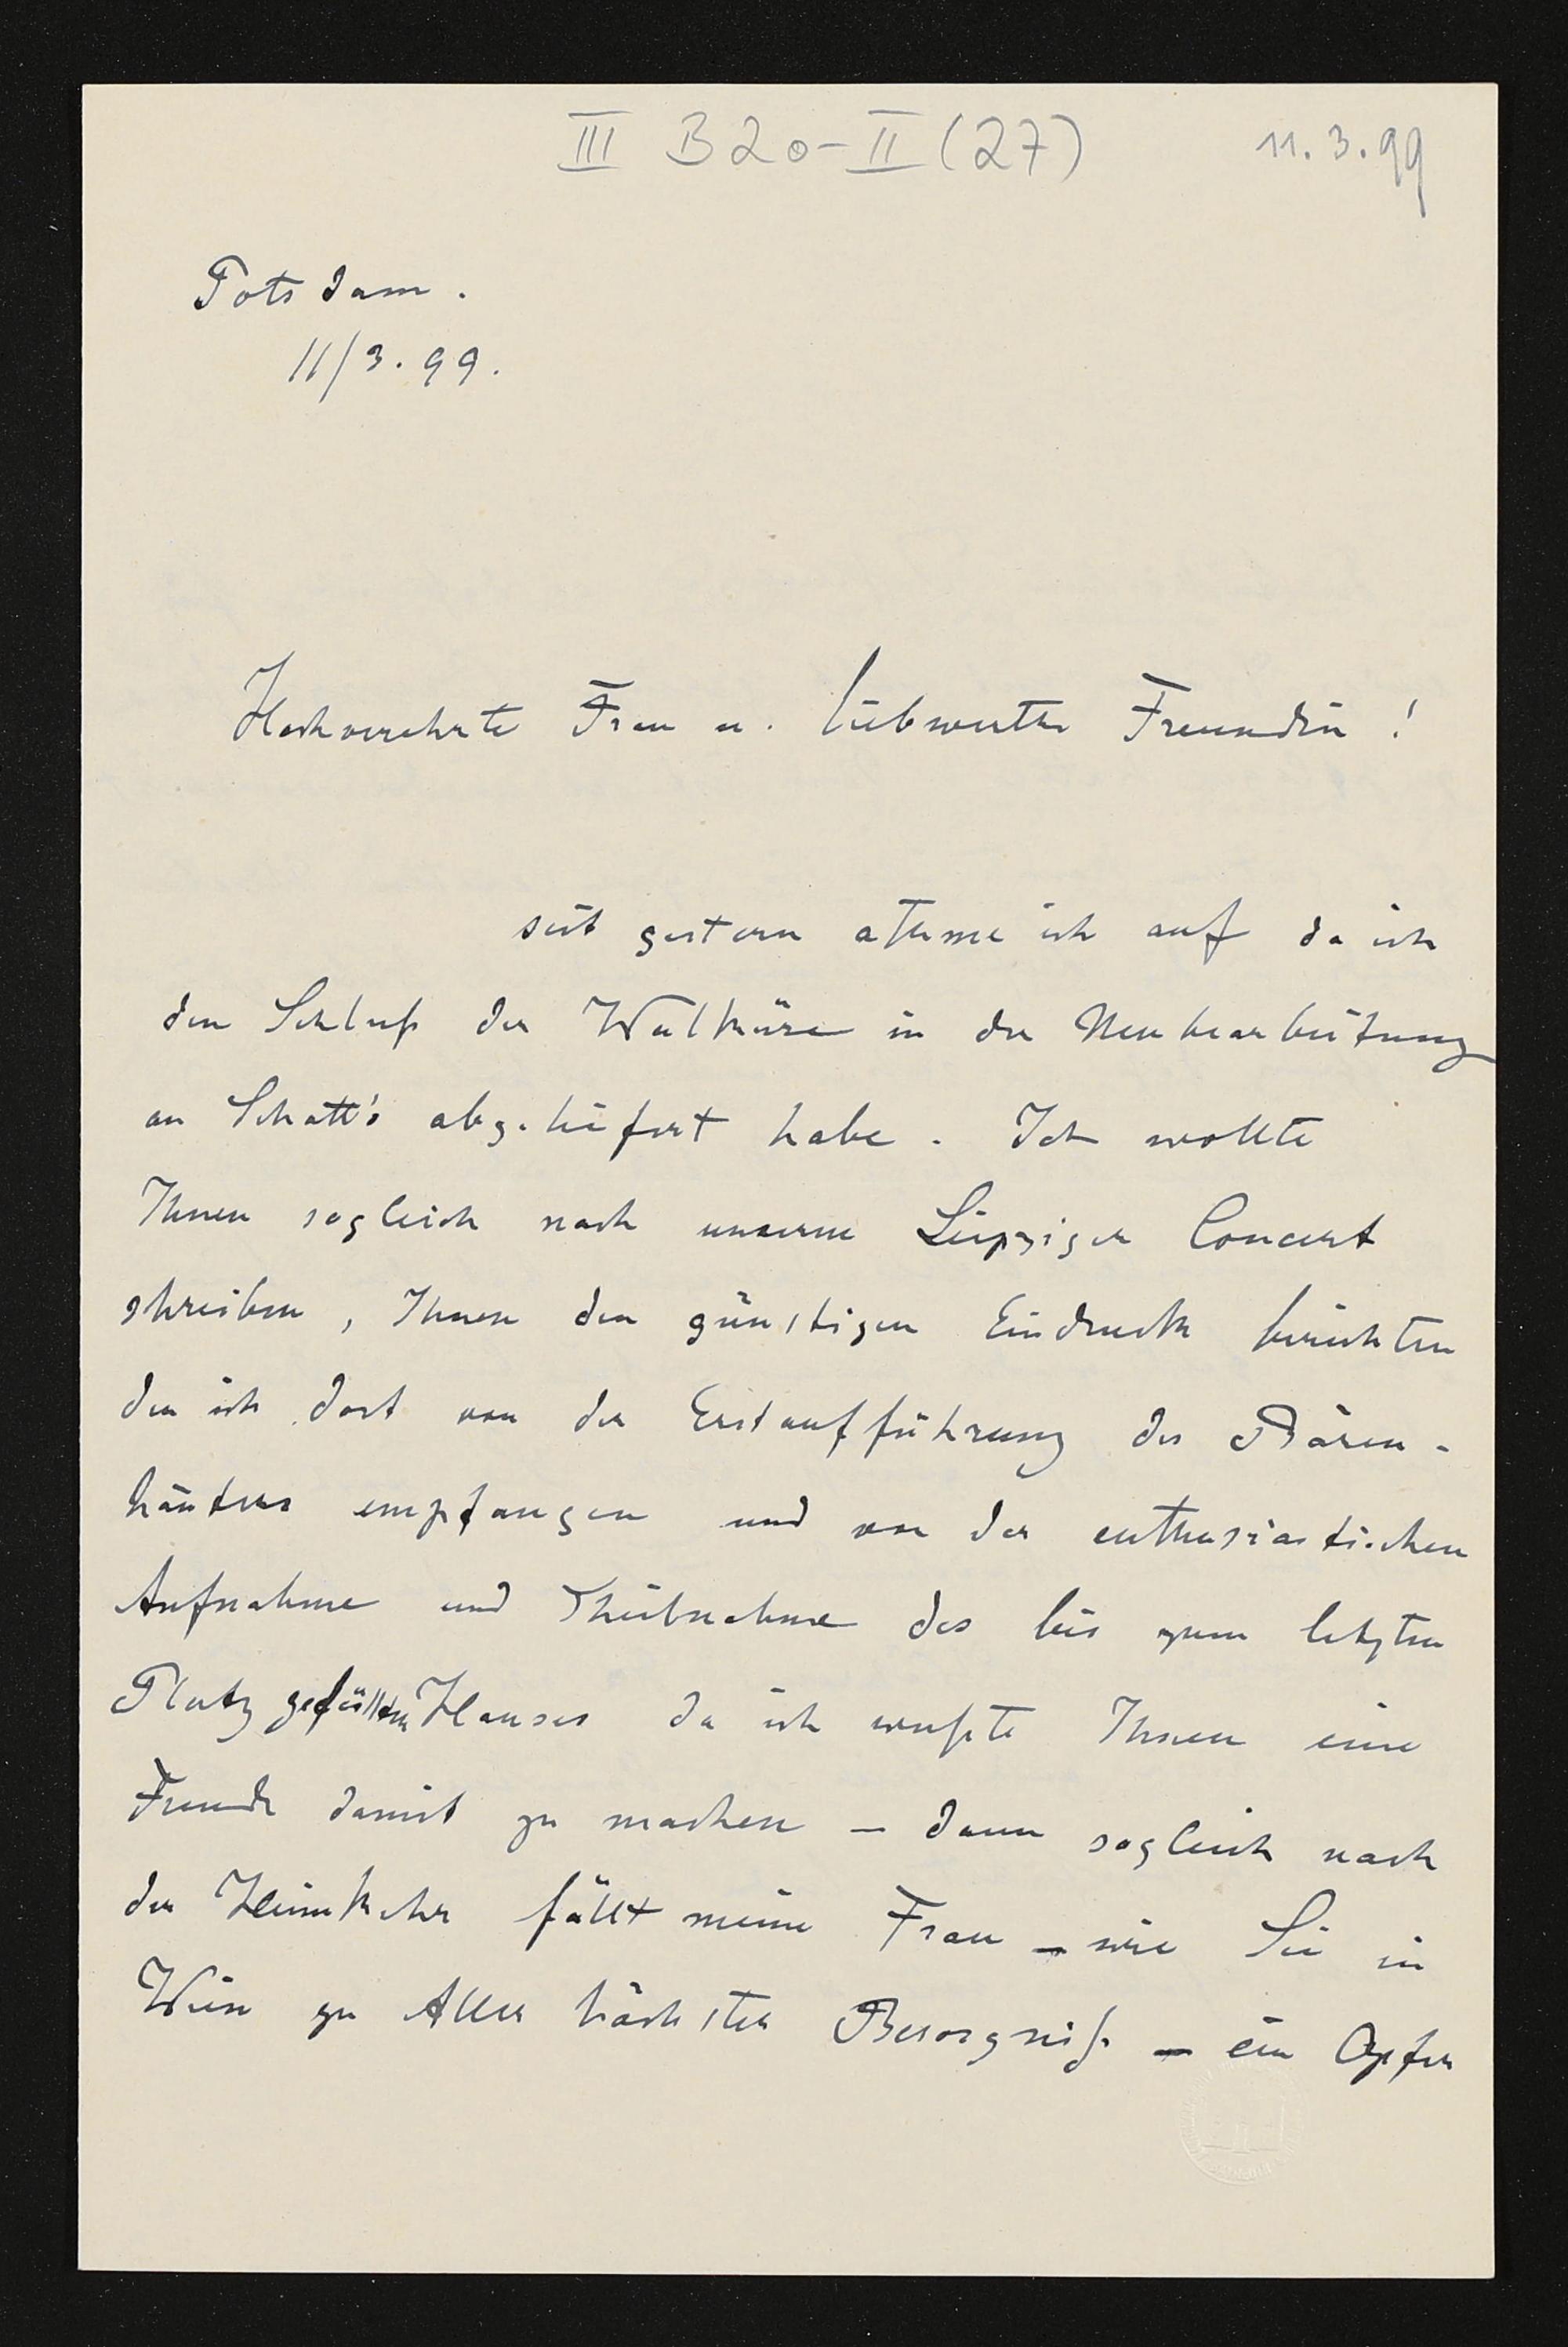 III B20-II (27)
11.3.99
Potsdam.
11/3.99.
Hochverehrte Frau u. liebwerthe Freundin!
seit gestern athme ich auf da ich
den Schluß der Walküre in der Neubearbeitung
an Schott's abgeliefert habe. Ich wollte
Ihnen sogleich nach unserm Leipziger Concert
schreiben, Ihnen den günstigen Eindruck berichten
den ich dort von der Erstaufführung des Bären-
häuters empfangen und von der enthusiastischen
Aufnahme und Theilnahme des bis zum letzten
Platz gefüllten Hauses da ich wußte Ihnen eine
Freude damit zu machen – dann sogleich nach
der Heimkehr fällt meine Frau – wie Sie in
Wien zu Aller höchster Besorgniß – ein Opfer